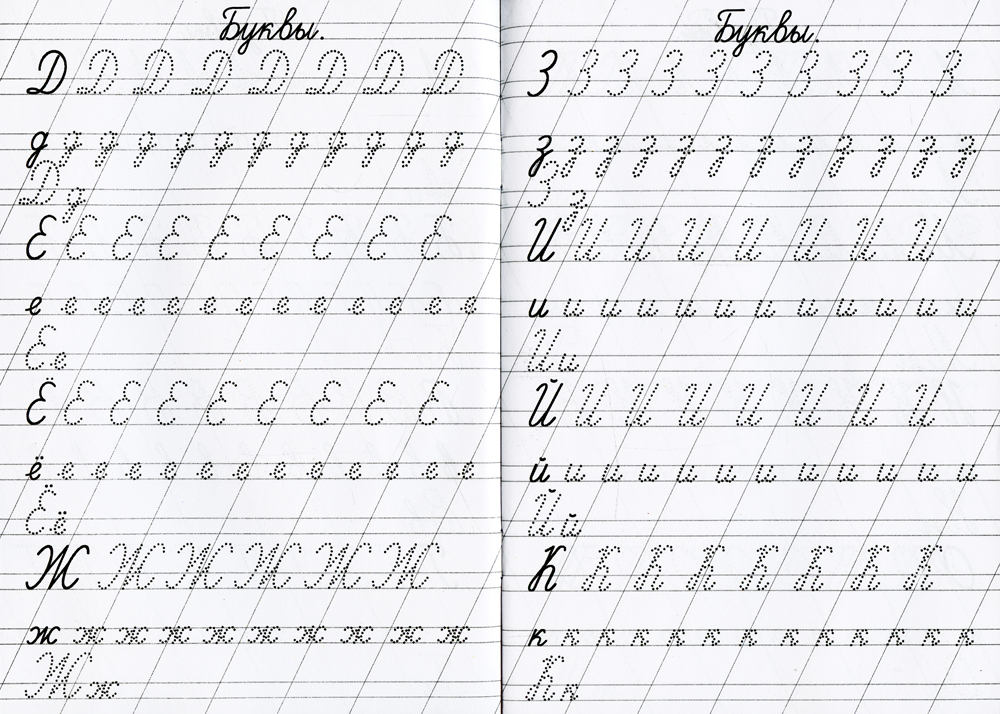 Буквы.
Д Д Д Д Д Д Д Д
д д д д д д д д д д д д
Дд
Е Е Е Е Е Е Е Е Е
е е е е е е е е е е е е е
Ее
Ё Е Е Е Е Е Е Е Е
ё е е е е е е е е е е е е
Ёё
Ж Ж Ж Ж Ж Ж
ж ж ж ж ж ж ж ж ж ж
Жж
Буквы.
З З З З З З З З З З
з з з з з з з з з з з з
Зз
И И И И И И И И
и и и и и и и и и и и и
Ии
Й И И И И И И И
й и и и и и и и и и и и
Йй
К К К К К К К К
к к к к к к к к к к к к к
Кк